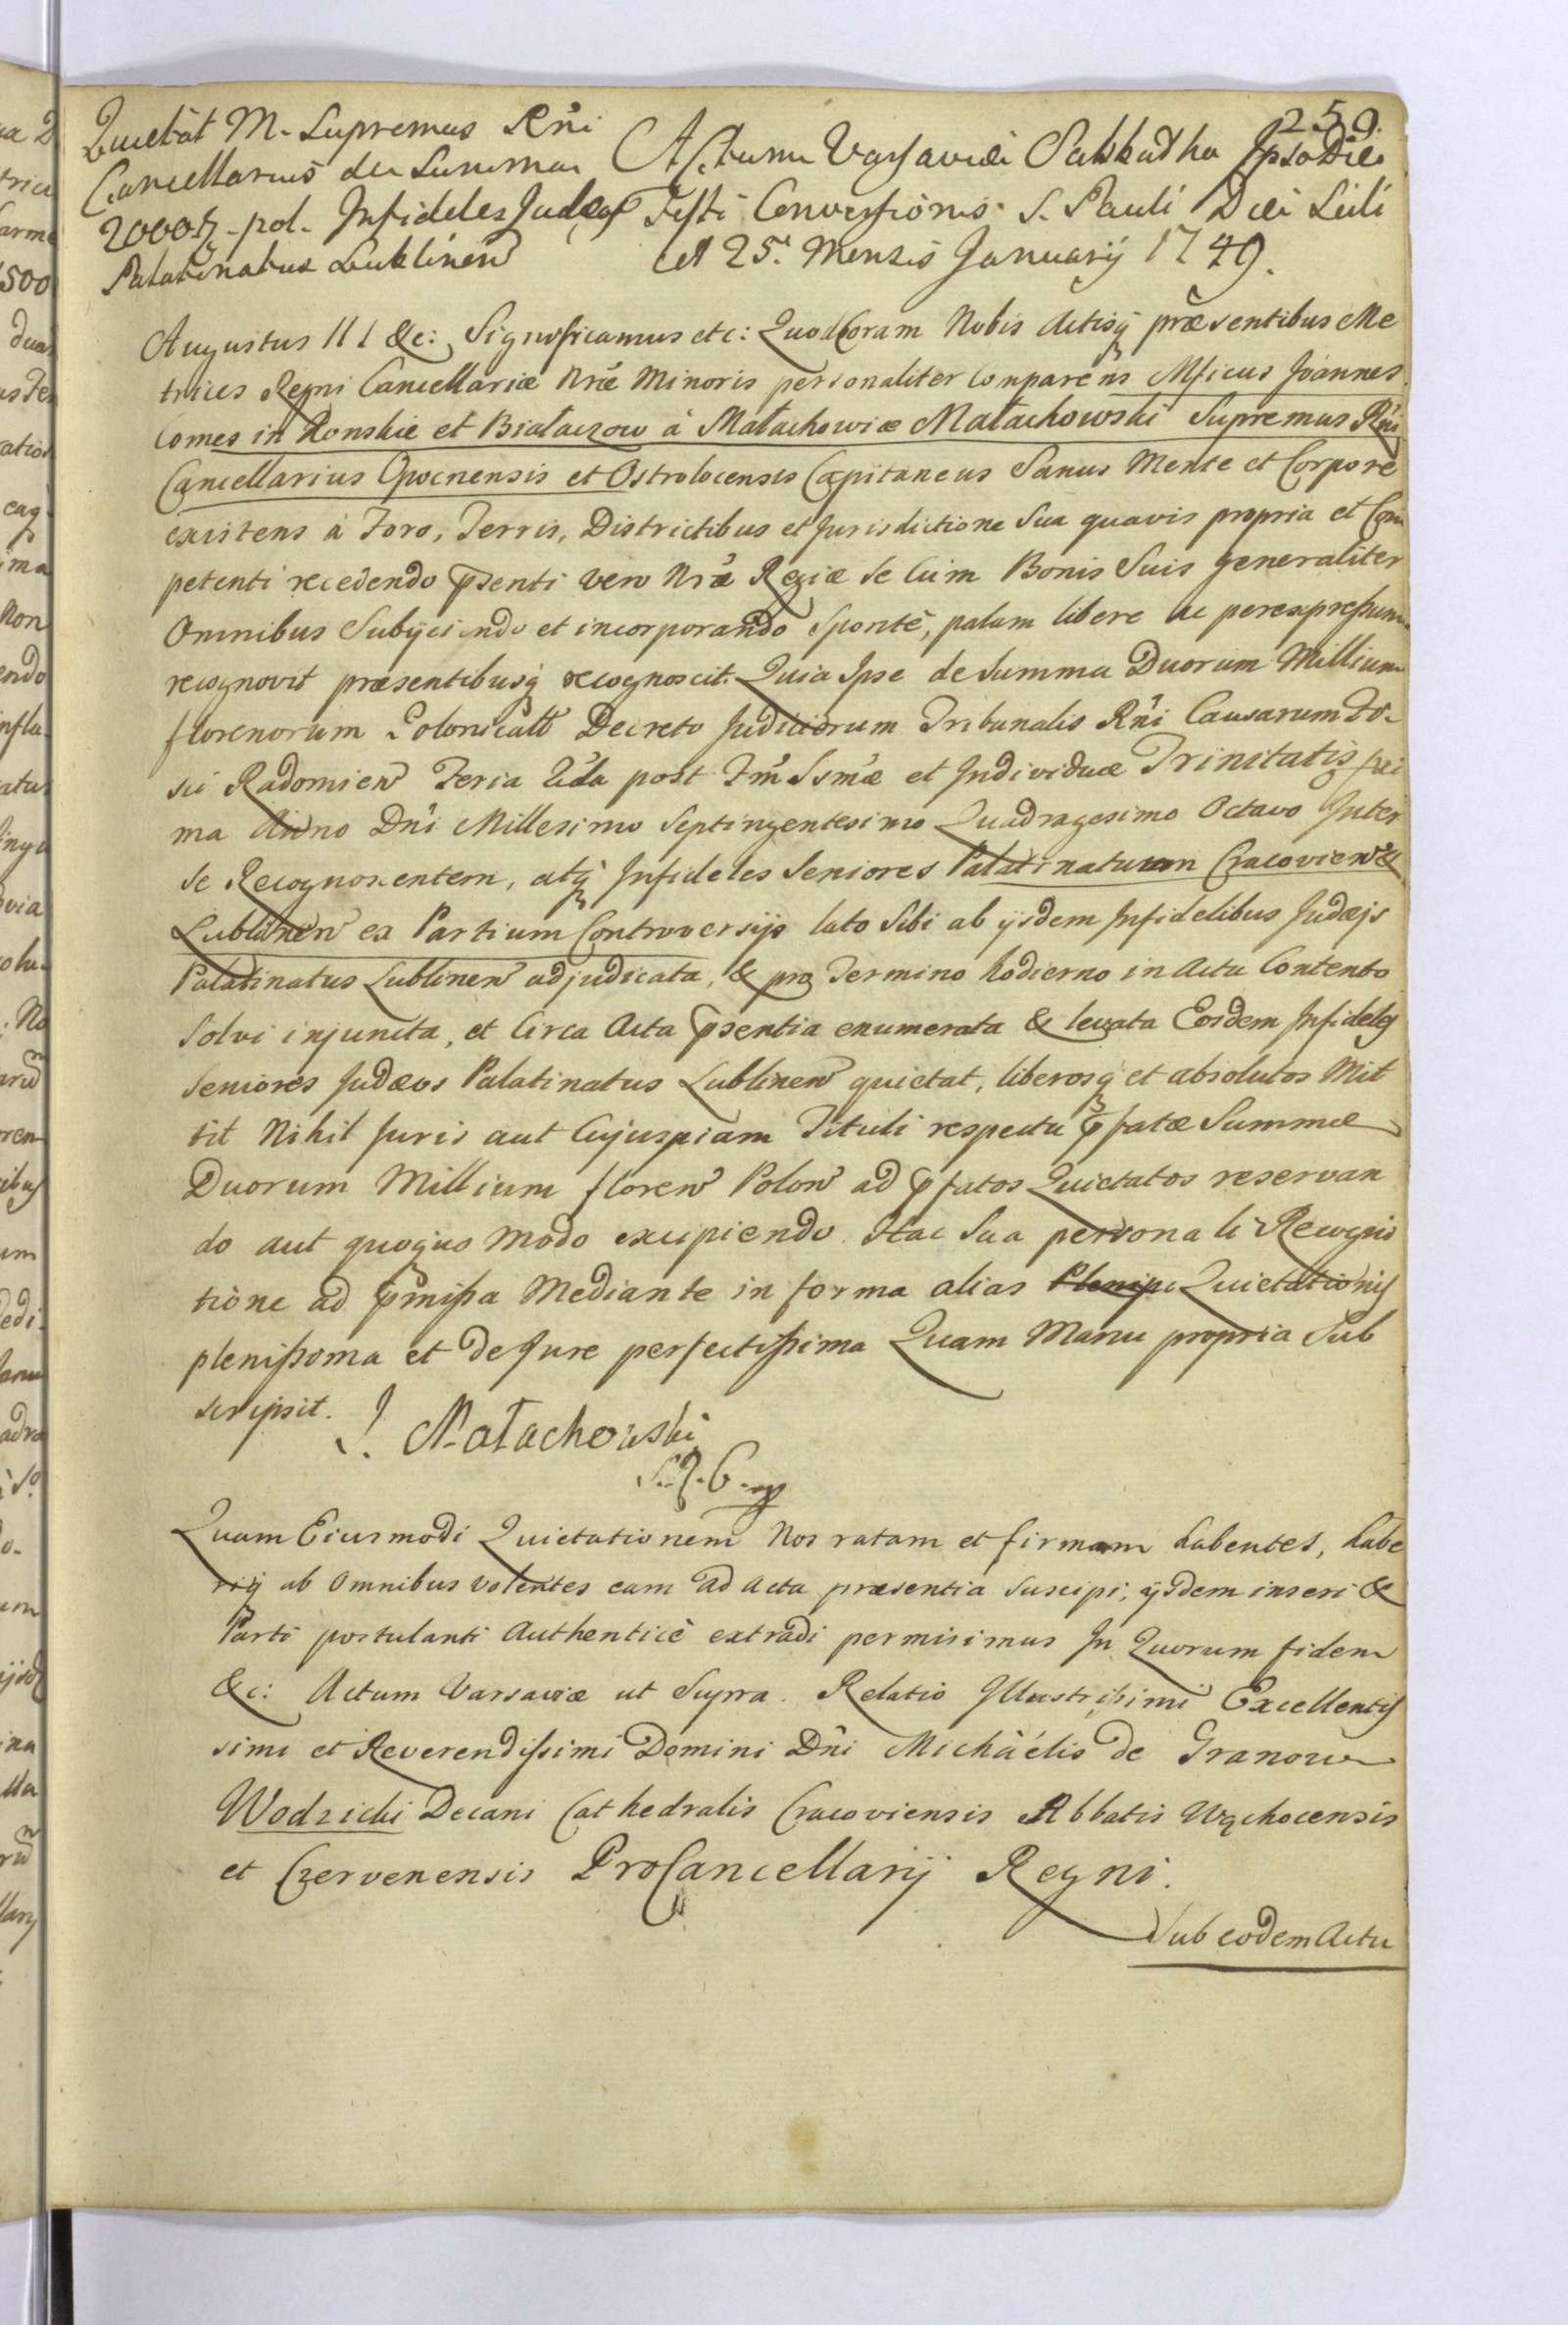 259.
Quietat M. Supremus Rńi
Cancellarius de Summa
2000 fl. pol. Infideles Judæos
Palatinatus Lublinen
Actum Varsaviæ Sabbatho Ipso Die
Festi Conversionis S. Pauli Diei Scili
cet 25. Mensis Januarij 1749.
Augustus III &c: Significamus etc: Quod Coram Nobis Actisq præsentibus Me
trices Regni Cancellariæ Nræ Minoris personaliter Conparens Mficus Joannes
Comes in Konskie et Białaczow à Małachowice Małachowski Supremus Rńi
Cancellarius Opocnensis et Ostrolocensis Capitaneus Sanus Mente et Corpore
existens à Foro, Terris, Districtibus et Jurisdictione Sua quavis propria et Com
petenti recedendo psenti vero Nræ Regiæ Se Cum Bonis Suis generaliter
Omnibus Subijciendo et incorporando Spontè, palam libere ac per expressum
recognovit præsentibusq recognoscit. Quia Ipse de Summa Duorum Millium
florenorum Polonicaliu Decreto Judiciorum Tribunalis Rńi Causarum Fi-
sci Radomien Feria 2da post Fm̃ Ssmæ et Individuæ Trinitatis pri
ma Anno Dńi Millesimo Septingentesimo Quadragesimo Octavo Inter
Se Recognoscentem, atq Infideles Seniores Palatinatuum Cracovien &
Lublinen ex Partium Controversijs lato Sibi ab ijsdem Infidelibus Judæjs
Palatinatus Lublinen adjudicata, & pro Termino hodierno in Actu Contento
Solvi injuncta, et Circa Acta psentia enumerata & levata Eosdem Infideles
Seniores Judæos Palatinatus Lublinen quietat, liberosq et absolutos Mit
tit Nihil Juris aut Cujuspiam Tituli respectu pfatæ Summæ
Duorum Millium floren Polon ad pfatos Quietatos reservan
do aut quoquo Modo excipiendo. Hac Sua personali Recogni
tione ad pmissa Mediante in forma alias Plenipo Quietationis
plenissoma et de Jure perfectissima Quam Manu propria Sub
scripsit.
J. Małachowski
S. R. C. mp
Quam Eiusmodi Quietationem Nos ratam et firmam habentes, habe
riq ab Omnibus Volentes eam ad Acta præsentia Suscipi, ijsdem inseri &
Parti postulanti Authenticè extradi permisimus In Quorum fidem
&c: Actum Varsaviæ ut Supra. Relatio Illustrissimi Excellentis
simi et Reverendissimi Domini Dńi Michaélis de Granow
Wodzicki Decani Cathedralis Cracoviensis Abbatis Wąchocensis
et Czervenensis ProCancellarij Regni.
Sub eodem Actu